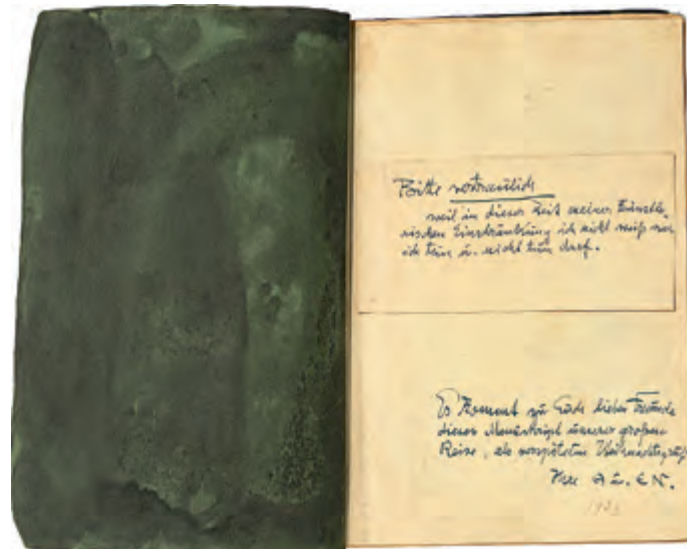 Bitte vertraulich
weil in dieser Zeit meiner künstle-
rischen Einschränkung ich nicht weiß was
ich tun u. nicht tun darf.
Es kommt zu Euch lieben Freunde
dieses Manuskript unserer großen
Reise, als verspäteter Weihnachtsgruß
Ihre A u. E N.